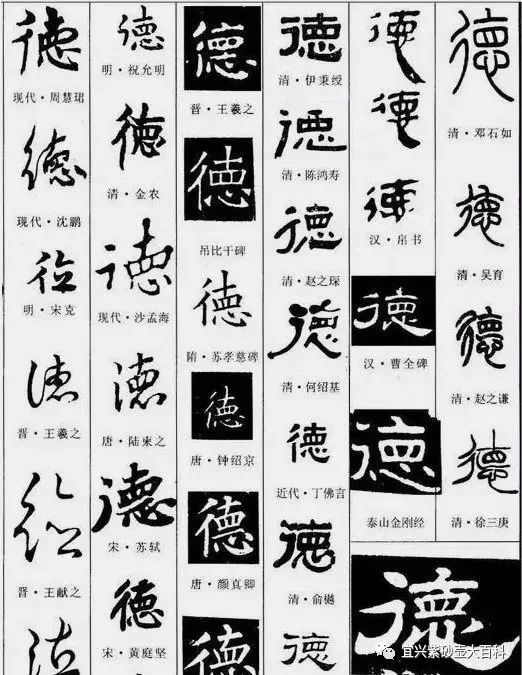 德
现代·周慧珺
德
现代·沈鹏
德
明·宋克
德
晋·王羲之
德
晋·王献之
德
明·祝允明
德
清·金农
德
现代·沙孟海
德
唐·陆柬之
德
宋·苏轼
德
宋·黄庭坚
德
晋·王羲之
德
吊比干碑
德
隋·苏孝慈碑
德
唐·钟绍京
德
唐·颜真卿
德
德
清·伊秉绶
德
清·陈鸿寿
德
清·赵之琛
德
清·何绍基
德
近代·丁佛言
德
清·俞樾
德
德
德
德
汉·帛书
德
汉·曹全碑
德
泰山金刚经
德
清·邓石如
德
清·吴育
德
清·赵之谦
德
清·徐三庚
德
宜兴紫砂壶大百科